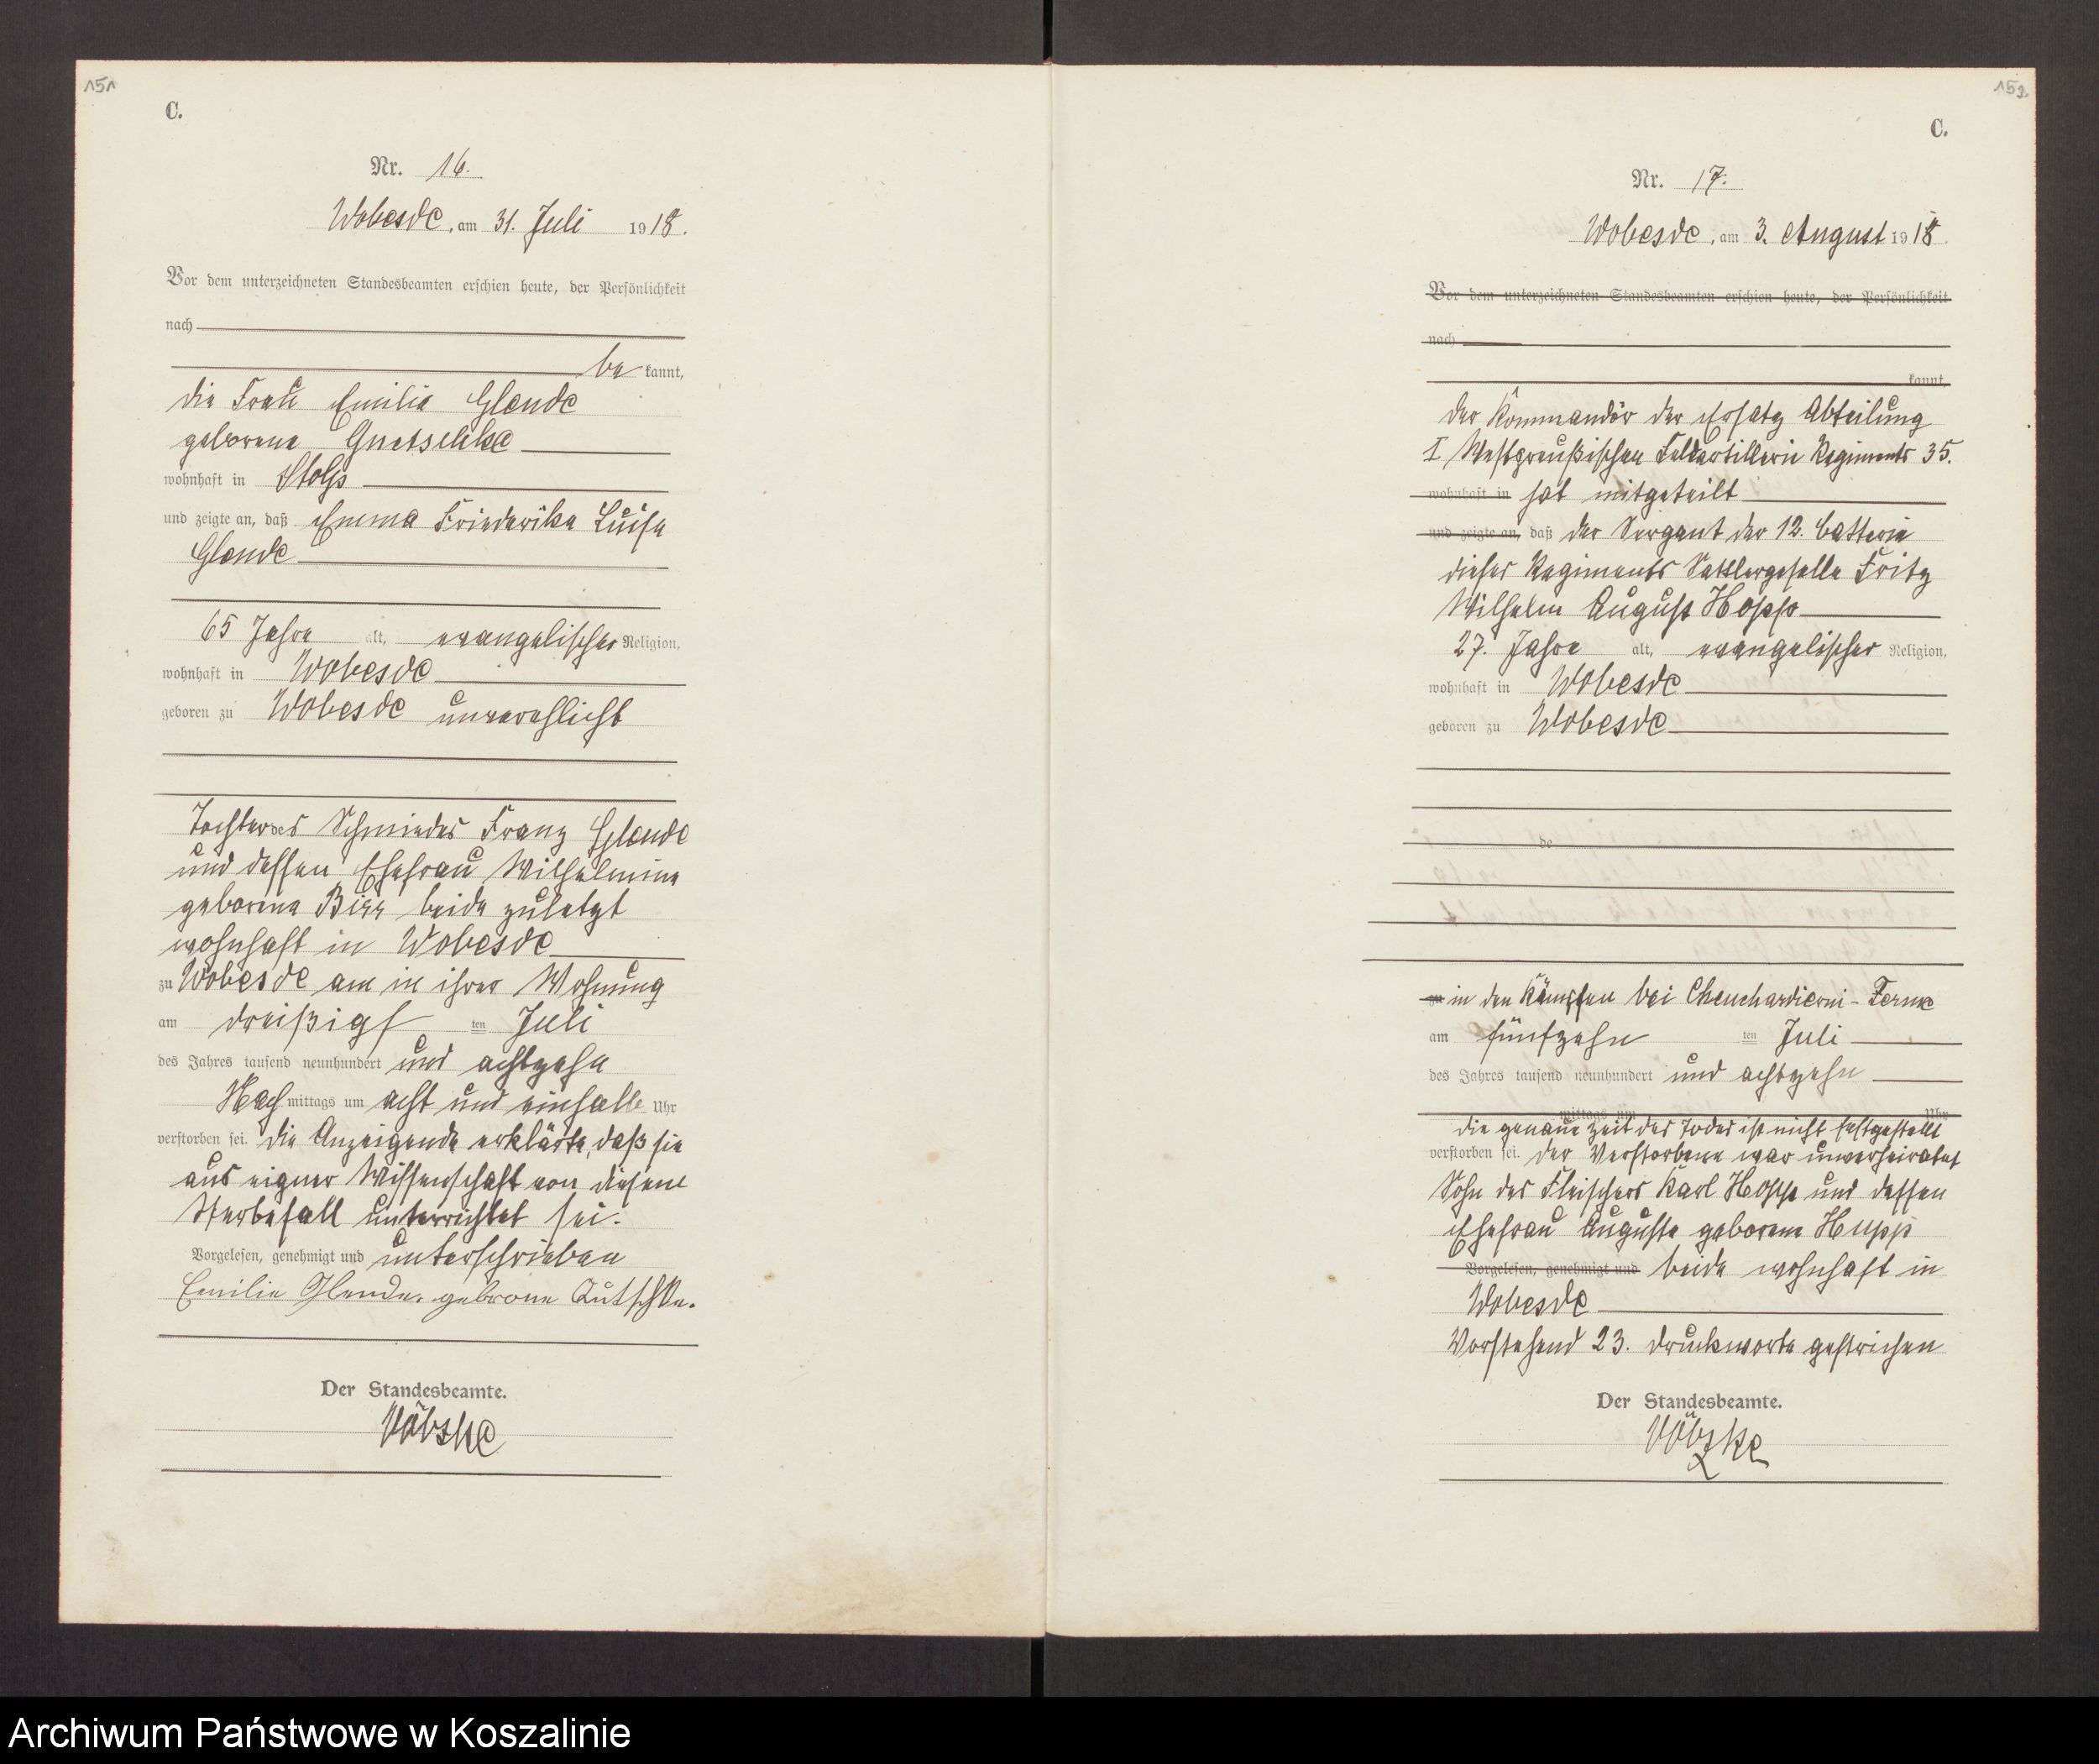 151
C.
Nr. 16.
Wobesde, am 31. Juli 1918.
Vor dem unterzeichneten Standesbeamten erschien heute, der Persönlichkeit
nach
be kannt,
die Frau Emilie Glende
geborene Gnetschke
wohnhaft in Stolp
und zeigte an, daß Emma Friederike Luise
Glende
65 Jahre alt, evangelischer Religion,
wohnhaft in Wobesde
geboren zu Wobesde unverehlicht
Tochter des Schmiedes Franz Glende
und dessen Ehefrau Wilhelmine
geborene beide zuletzt
wohnhaft in Wobesde
zu Wobesde am in ihrer Wohnung
am dreißigs ten Juli
des Jahres tausend neunhundert und achtzehn
Nach mittags um acht und einhalb Uhr
verstorben sei. die Anzeigende erklärte, daß sie
aus eigner Wissenschaft von diesem
Sterbefall unterrichtet sei.
Vorgelesen, genehmigt und unterschrieben
Emilie Glende, geborne
Der Standesbeamte.
152
C.
Nr. 17.
Wobesde, am 3. August 1918.
Vor dem unterzeichneten Standesbeamten erschien heute, der Persönlichkeit
nach
kannt,
der Kommandör der Ersatz Abteilung
I Westpreußischen Feldartillerie Regiments 35.
wohnhaft in hat mitgeteilt
und zeigte an, daß der Sergant der 12. Batterie
dieses Regiments Sattlergeselle Fritz
Wilhelm August Hopp
27. Jahre alt, evangelischer Religion,
wohnhaft in Wobesde
geboren zu Wobesde
de
zu in den Kämpfen bei Chenchardierni-Ferme
am fünfzehn ten Juli
des Jahres tausend neunhundert und achtzehn
mittags um Uhr
die genaue Zeit des Todes ist nicht festgestellt
verstorben sei. der Verstorbene war unverheiratet
Sohn des Fleischers Karl Hopp und dessen
Ehefrau Auguste geborene Hupp
Vorgelesen, genehmigt und beide wohnhaft in
Wobesde
Vorstehend 23. druckworte gestrichen
Der Standesbeamte.
Archiwum Państwowe w Koszalinie